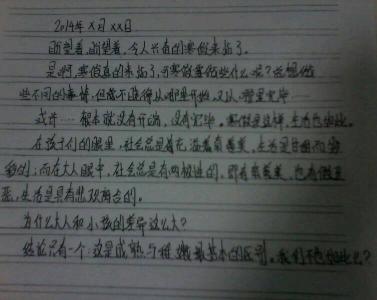 2014年X月XX日
盼望着,盼望着,令人兴奋的寒假来临了。
是啊,寒假真的来临了,可寒假要做些什么呢?总想做
些不同的事情,但常不晓得从哪里开始,又从哪里完毕…
或许…根本就没有开端,没有完毕。寒假是这样,生活也如此。
在孩子们的眼里,社会总是着充满着真善美,生活是甘甜而
的;而在大人眼中,社会总是有两极性的,即有真善美,也有假丑
恶,生活是具有悲欢离合的。
为什么大人和小孩的差异这么大?
结论只有一个:这是成熟与稚嫩最基本的区别。我们不也如此么?